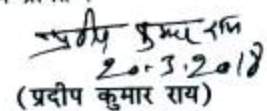 प्रदीप कुमार राय
20.3.2018
(प्रदीप कुमार राय)